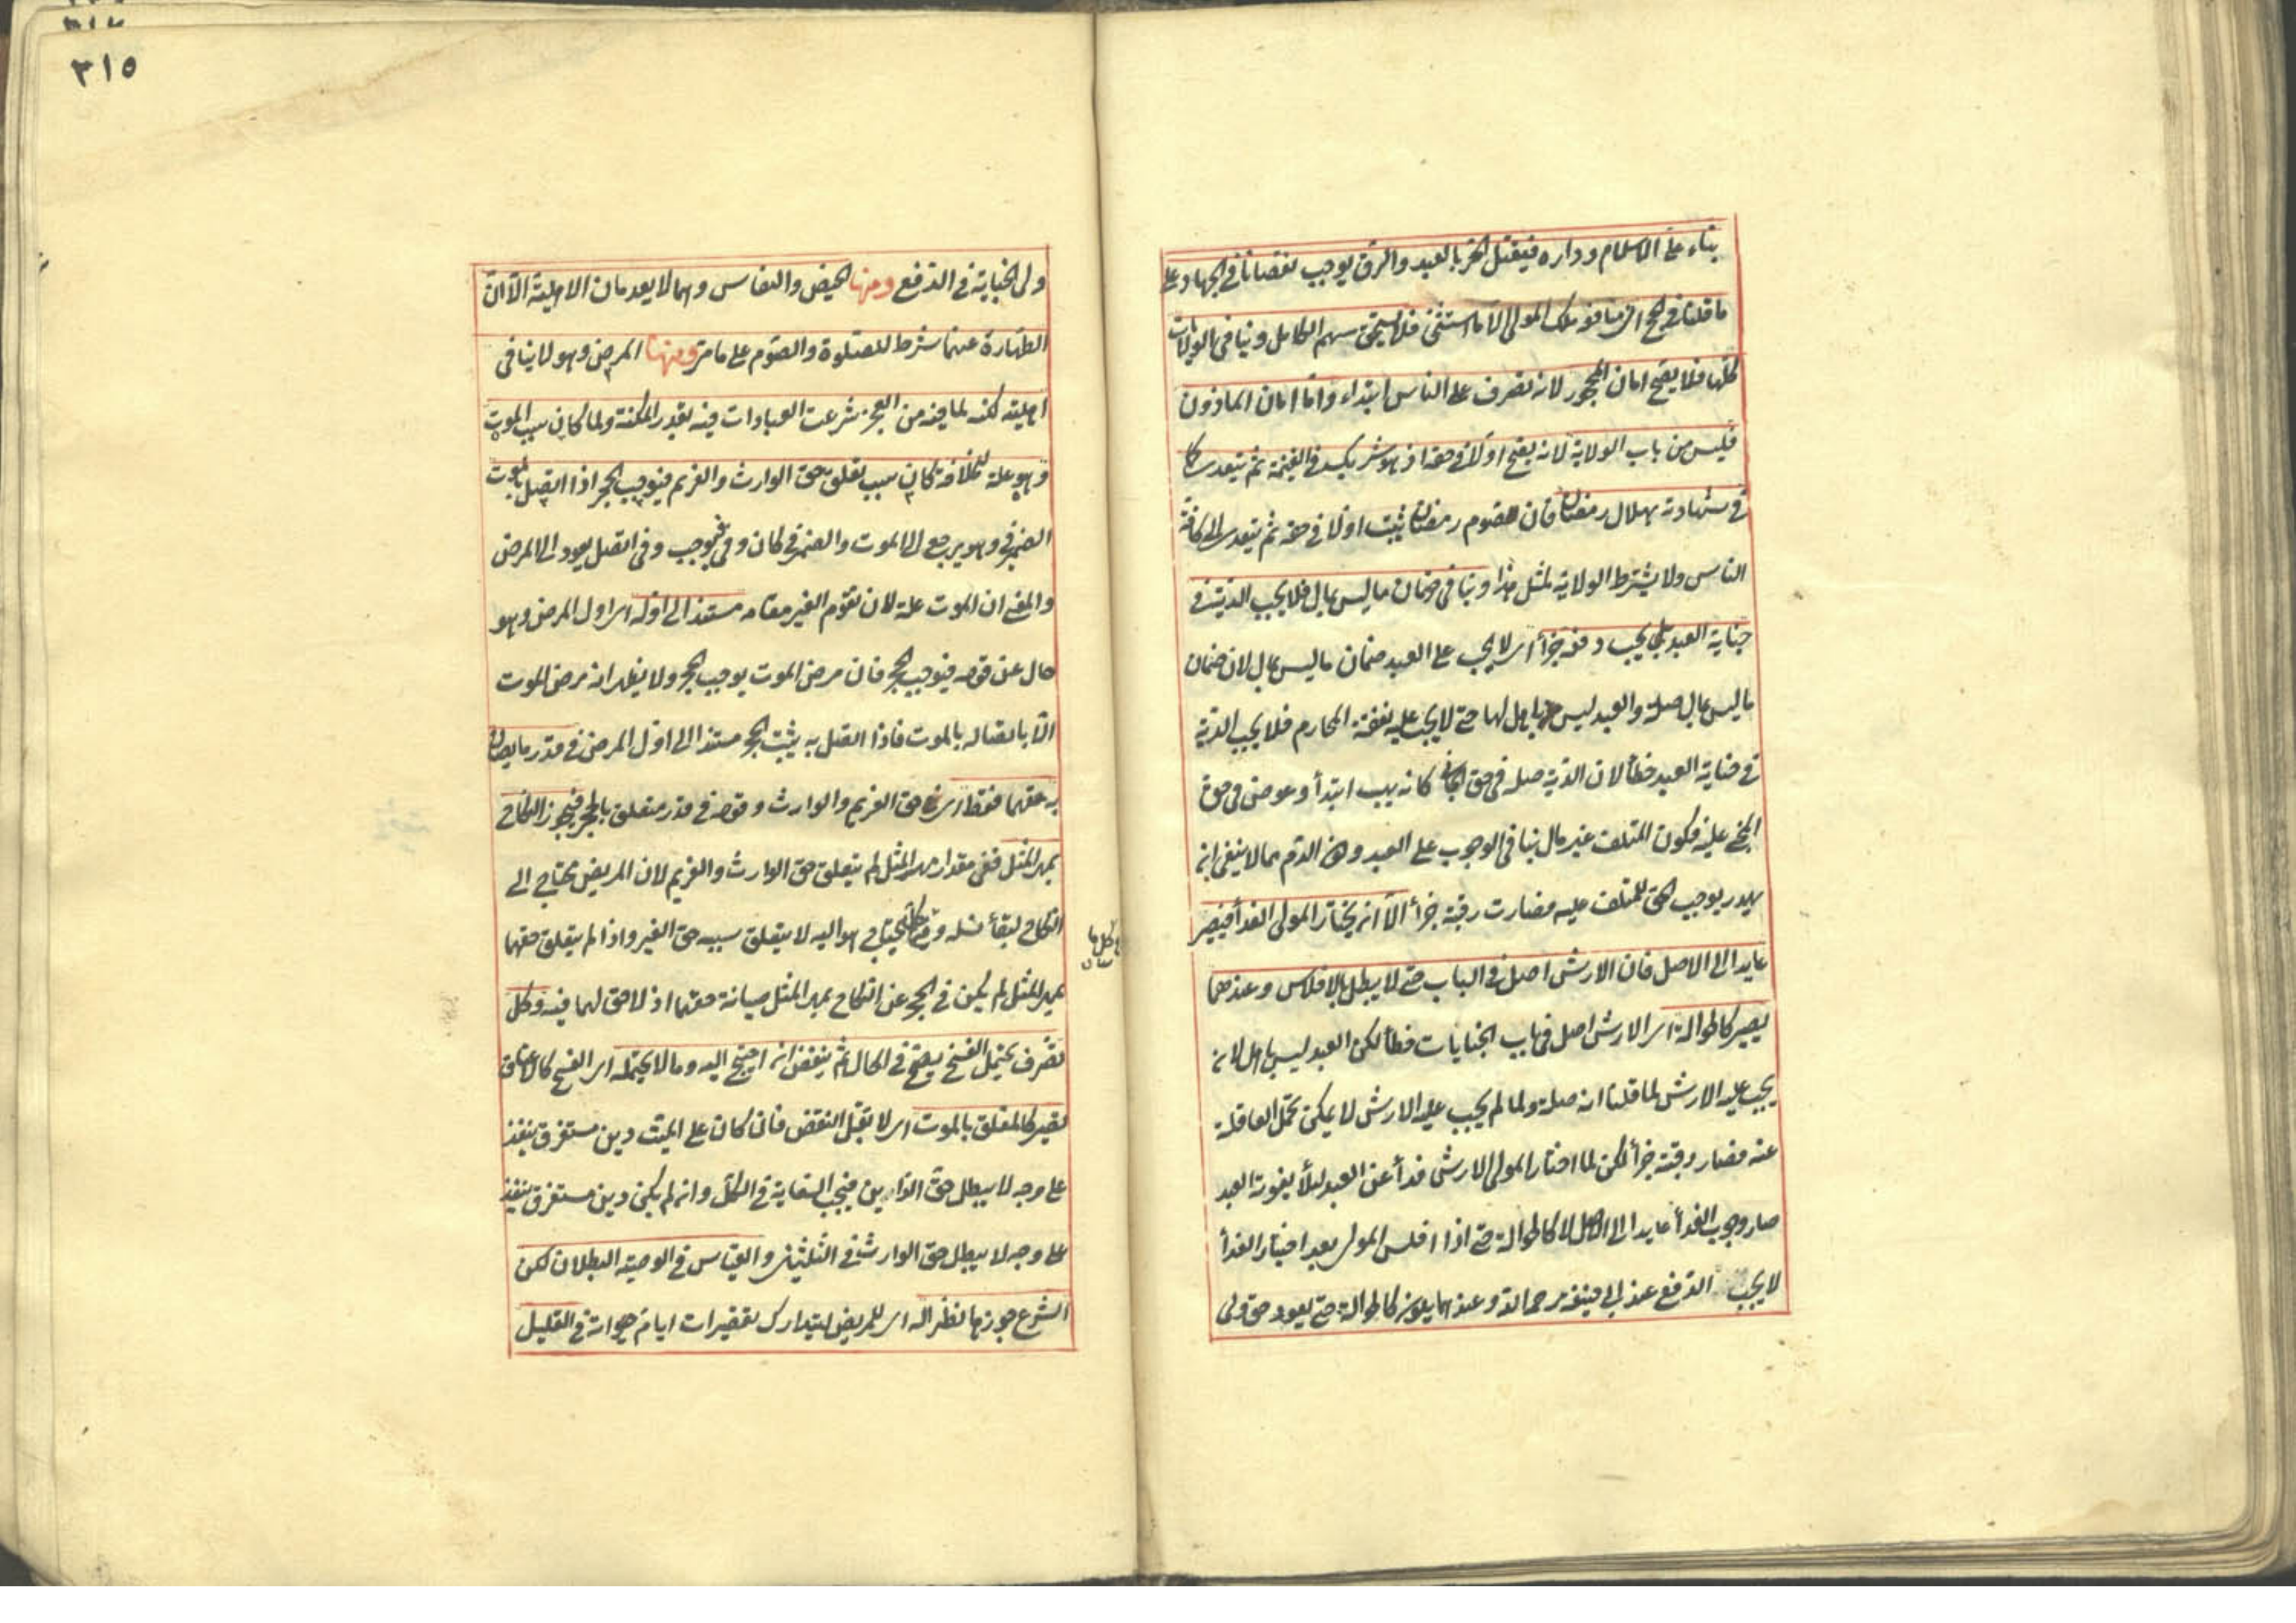 بناء على الاسلام وداره فيقتل الحر بالعبد والرق يوجب نقصانا في الجهاد على
ما قلنا في الحج ان منافعه ملك المولى الا ما استثنى فلا يستحق سهم الكامل وينافي الولايات
كلها فلا يصح امان المحجور لانه تصرف على الناس ابتداء واما امان الماذون
فليس من باب الولاية لانه يصح اولا في حقه اذ هو شريك في الغنيمة ثم يتعدى كما
في شهادته بهلال رمضان فان صوم رمضان يثبت اولا في حقه ثم يتعدى الى كافة
الناس ولا يشترط الولاية لمثل هذا وينافي ضمان ما ليس بمال فلا يجب الدية في
جناية العبد بل يجب دفعه جزأ اى لا يجب على العبد ضمان ما ليس بمال لان ضمان
ما ليس بمال صلة والعبد ليس باهل لها حتى لا يجب عليه نفقة المحارم فلا يجب الدية
في جناية العبد خطأ لان الدية صلة في حق الجانى كانه يهب ابتدأ وعوض في حق
المجني عليه فكون المتلف غير مال ينافي الوجوب على العبد وكون الدم مما لا ينبغي ان
يهدر يوجب الحق للمتلف عليه فصارت رقبته جزأ الا ان يختار المولى الفدأ فيصير
عايدا الى الاصل فان الارش اصل في الباب حتى لا يبطل بالافلاس وعندهما
يصير كالحوالة اى الارش اصل في باب الجنايات خطأ لكن العبد ليس باهل لانه
يجب عليه الارش لما قلنا انه صلة ولما لم يجب عليه الارش لا يمكن تحمل العاقلة
عنه فصار رقبته جزأ لكن لما اختار المولى الارش فدأ عن العبد لئلا يفوته العبد
صار وجوب الفدأ عايدا الى الاصل لا كالحوالة حتى اذا افلس المولى بعد اختيار الفدأ
لا يجب الدفع عند ابي حنيفة رحمه الله وعندهما يكون كالحوالة حتى يعود حق ولى
٣١٥
ولى الجناية في الدفع ومنها الحيض والنفاس وهما لا يعدمان الاهلية الا ان
الطهارة عنهما شرط للصلوة والصوم على ما مر ومنها المرض وهو لا ينافي
اهليته لكنه لما فيه من العجز شرعت العبادات فيه بقدر المكنة ولما كان سبب الموت
وهو علة للخلافة كان سبب تعلق حق الوارث والغريم فيوجب الحجر اذا اتصل بالموت
الضمير في وهو يرجع الى الموت والضمير في كان وفي فيوجب وفي اتصل يعود الى المرض
والمعنى ان الموت علة لان يقوم الغير مقامه مستندا الى اوله اى اول المرض وهو
حال عن قوله فيوجب الحجر فان مرض الموت يوجب الحجر ولا يظهر انه مرض الموت
الا باتصاله بالموت فاذا اتصل به يثبت الحجر مستندا الى اول المرض في قدر ما يصان
به حقهما فقط اى حق الغريم والوارث وقوله في قدر متعلق بالحجر فيجوز النكاح
بمهر المثل ففي مقدار مهر المثل لم يتعلق حق الوارث والغريم لان المريض محتاج الى
النكاح لبقأ نسله و يحتاج هو اليه لا يتعلق سببه حق الغير واذا لم يتعلق حقهما
بمهر المثل لم يكن في الحجر عن النكاح بمهر المثل صيانة حقهما اذ لا حق لهما فيه وكل
كل ما
تصرف يحتمل الفسخ يصح في الحال ثم ينقض ان احتيج اليه وما لا يحتمله اى الفسخ كالاعتاق
تصير كالمعلق بالموت اى لا يقبل النقض فان كان على الميت دين مستغرق ينفذ
على وجه لا يبطل حق الدائن فيجب السعاية في الكل وان لم يكن دين مستغرق ينفذ
على وجه لا يبطل حق الوارث في الثلثين والقياس في الوصية البطلان لكن
الشرع جوزها نظرا له اى للمريض ليتدارك تقصيرات ايام حيوته في القليل